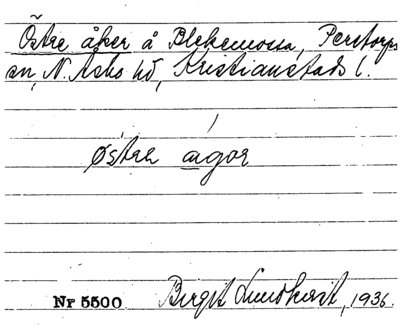 Östre åker å Blekemossa, Perstorps
sn, N. Åsbo hd, Kristianstads l.
östre agor
Nr 5500 Birgit Lundkvist, 1936.